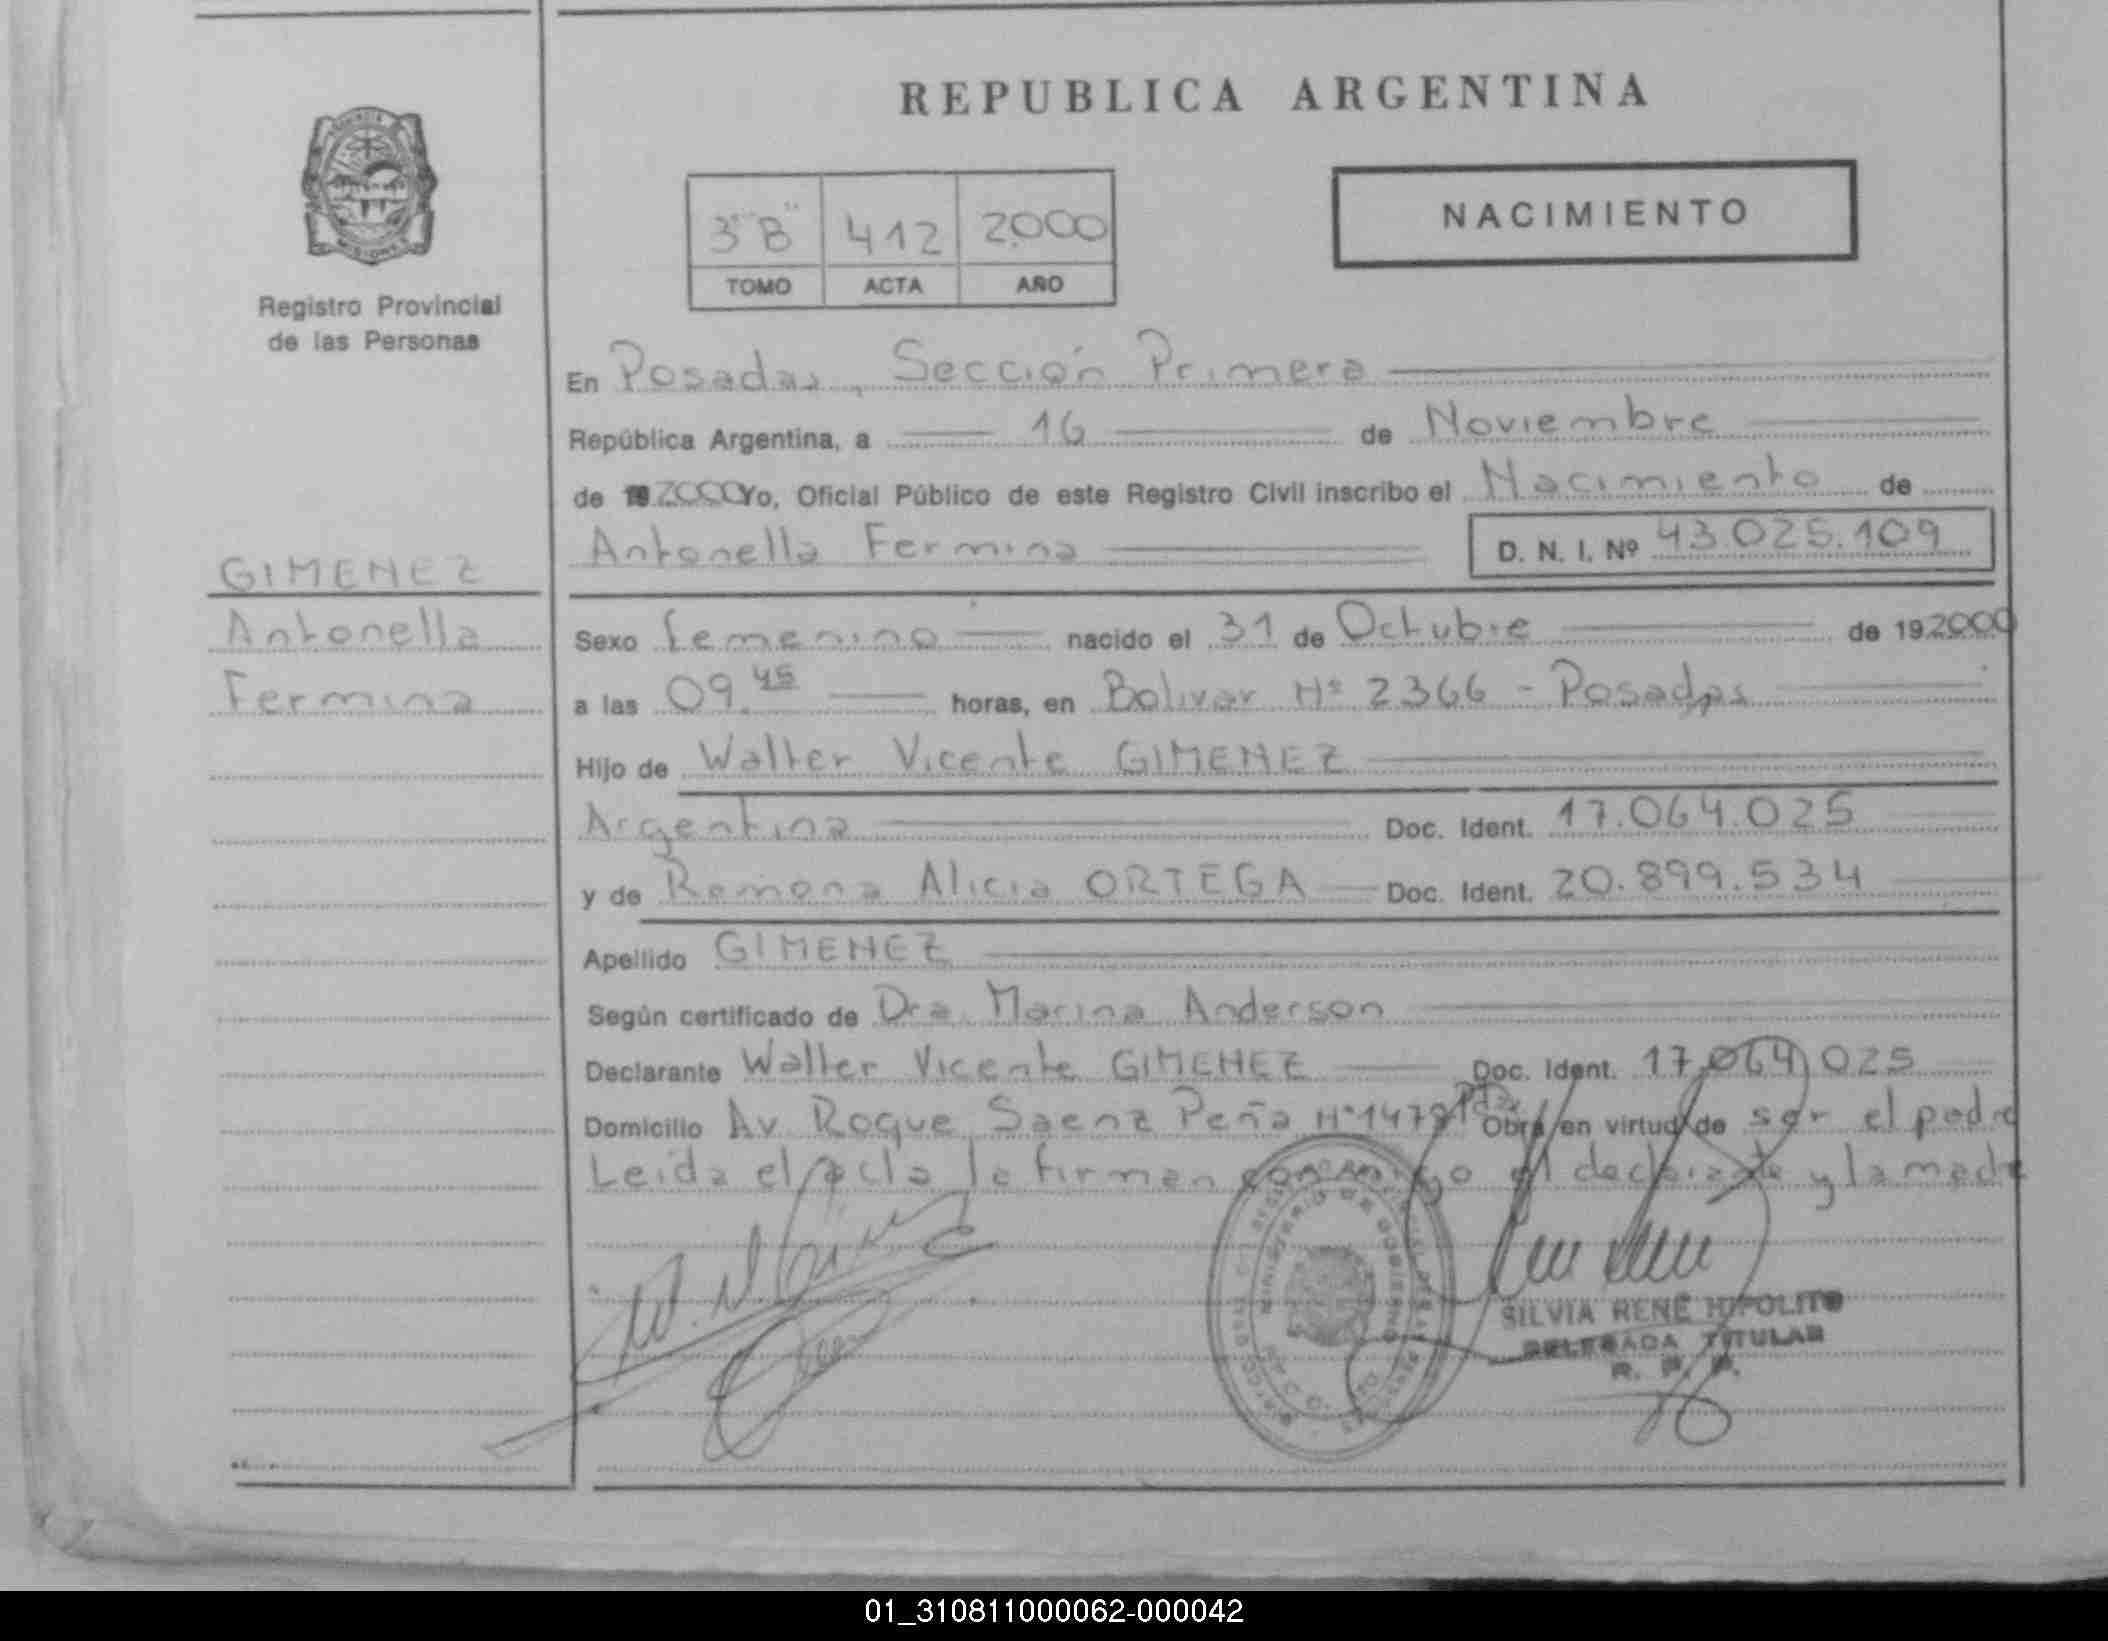 REPUBLICA ARGENTINA
NACIMIENTO
3º "B" 412 2.000
TOMO ACTA AÑO
Registro Provincial
de las Personas
En Posadas, Sección Primera
República Argentina, a 16 de Noviembre
de 192000 Yo, Oficial Público de este Registro Civil inscribo el Nacimiento de
Antonella Fermina D. N. I. Nº 43.025.109
GIMENEZ
Antonella
Fermina
Sexo femenino nacido el 31 de Octubre de 192000
a las 09.45 horas, en Bolivar Nº 2366 - Posadas
Hijo de Walter Vicente GIMENEZ
Argentina Doc. Ident. 17.064.025
y de Ramona Alicia ORTEGA Doc. Ident. 20.899.534
Apellido GIMENEZ
Según certificado de Dra. Marina Anderson
Declarante Walter Vicente GIMENEZ Doc. Ident. 17.064.025
Domicilio Av Roque Saenz Peña Nº 1478 Pdas Obra en virtud de ser el padre
Leida el acta la firman conmigo el declarante y la madre
MINISTERIO DE GOBIERNO
SILVIA RENÉ HIPOLITO
DELEGADA TITULAR
R. P. P.
01_310811000062-000042